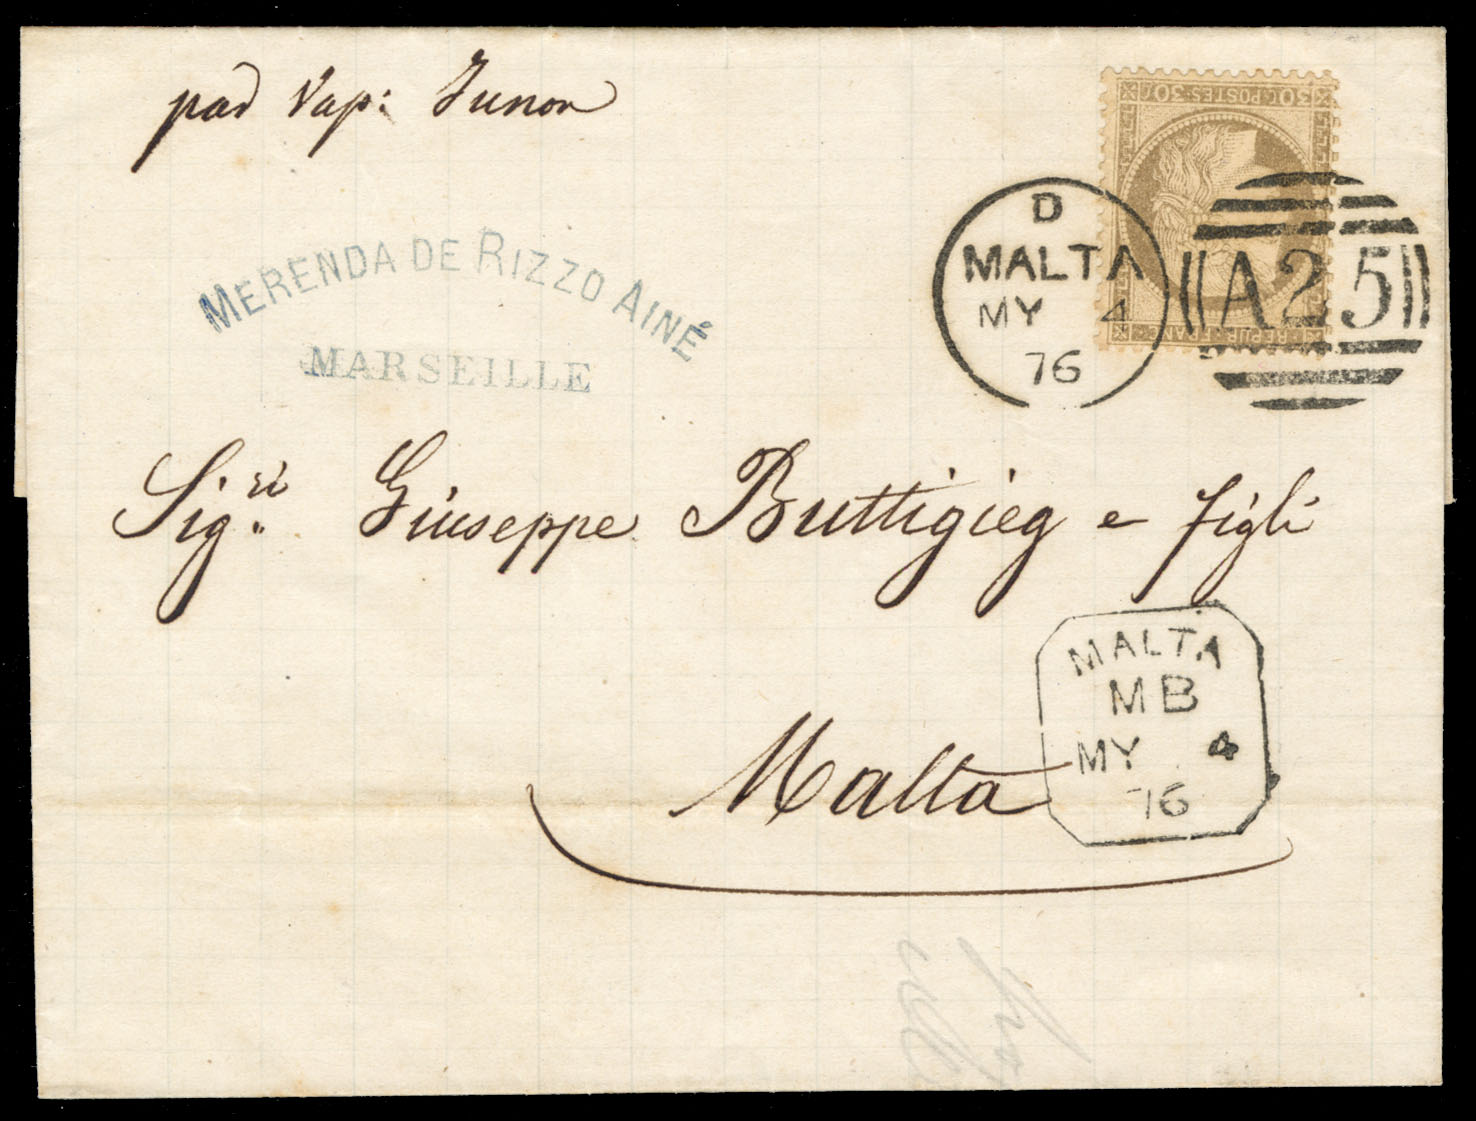 par Vap: Junon
30 C. POSTES 30 C.
REPUB FRANC
MERENDA DE RIZZO AINÉ
MARSEILLE
D
MALTA
MY 4
76
A25
Sigri Giuseppe Buttigieg e figli
Malta
MALTA
MB
MY 4
76